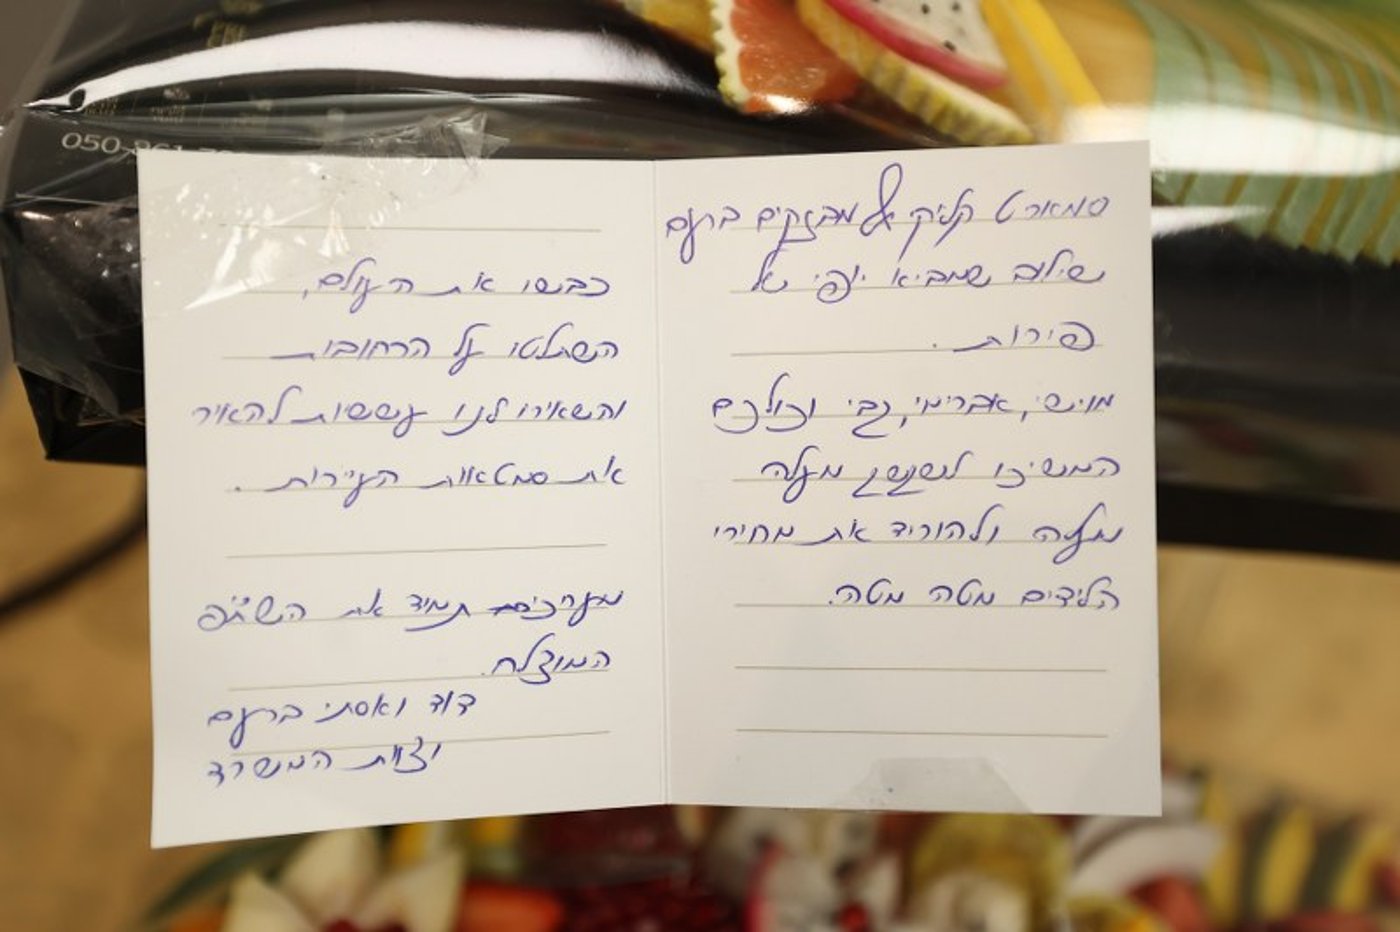 050-861
סמארט קליק על מבזקים ברעם
שילוב שמביא יופי של
פירות.
מוישי, אברימי, גבי וכולכם
המשיכו לשקשק מעלה
מעלה ולהוריד את מחירי
הלידים מטה מטה.
כבשו את העולם,
השתלטו על הרחובות
והשאירו לנו עששיות להאיר
את סמטאות העיירות.
מעריכים תמיד את השת"פ
המוצלח.
דוד ואסתי ברעם
וצוות המשרד